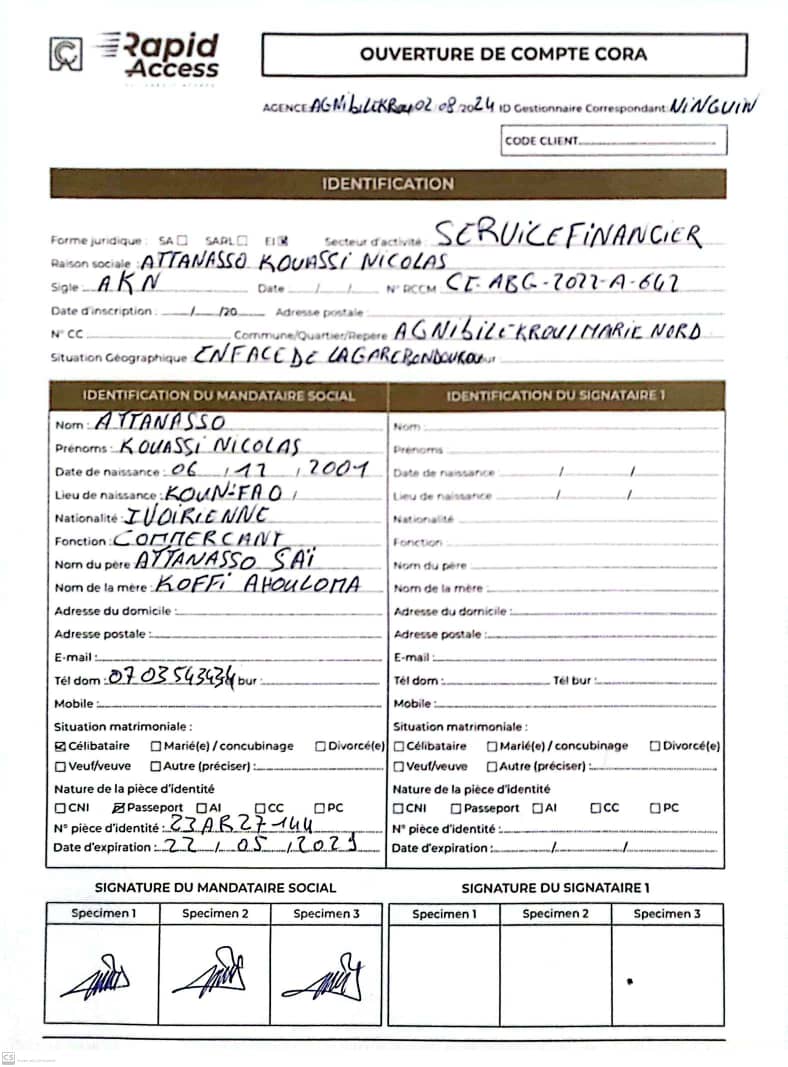 Rapid Access
OUVERTURE DE COMPTE CORA
AGENCE: AGNIBILEKROU 02/08/2024 ID Gestionnaire Correspondant: NINGUIN
CODE CLIENT
IDENTIFICATION
Forme juridique : SA ☐ SARL ☐ EI ☒ Secteur d'activité : SERVICE FINANCIER
Raison sociale : ATTANASSO KOUASSI NICOLAS
Sigle AKN Date / / N° RCCM CI-ABG-2022-A-642
Date d'inscription : / /20 Adresse postale :
N° CC Commune/Quartier/Repère AGNIBILEKROU/MARIE NORD
Situation Géographique EN FACE DE LA GARE BONDOUKOU
IDENTIFICATION DU MANDATAIRE SOCIAL
Nom : ATTANASSO
Prénoms : KOUASSI NICOLAS
Date de naissance : 06 / 12 / 2001
Lieu de naissance : KOUN-FAO /
Nationalité : IVOIRIENNE
Fonction : COMMERCANT
Nom du père ATTANASSO SAÏ
Nom de la mère : KOFFI AHOULOMA
Adresse du domicile :
Adresse postale :
E-mail :
Tél dom : 0703543434 bur :
Mobile :
Situation matrimoniale :
☒ Célibataire ☐ Marié(e) / concubinage ☐ Divorcé(e)
☐ Veuf/veuve ☐ Autre (préciser) :
Nature de la pièce d'identité
☐ CNI ☒ Passeport ☐ AI ☐ CC ☐ PC
N° pièce d'identité : 23AR27144
Date d'expiration : 22 / 05 /
IDENTIFICATION DU SIGNATAIRE 1
Nom :
Prénoms
Date de naissance / /
Lieu de naissance / /
Nationalité
Fonction
Nom du père
Nom de la mère :
Adresse du domicile :
Adresse postale :
E-mail :
Tél dom : Tél bur :
Mobile :
Situation matrimoniale :
☐ Célibataire ☐ Marié(e) / concubinage ☐ Divorcé(e)
☐ Veuf/veuve ☐ Autre (préciser) :
Nature de la pièce d'identité
☐ CNI ☐ Passeport ☐ AI ☐ CC ☐ PC
N° pièce d'identité :
Date d'expiration : / /
SIGNATURE DU MANDATAIRE SOCIAL
Specimen 1 Specimen 2 Specimen 3
SIGNATURE DU SIGNATAIRE 1
Specimen 1 Specimen 2 Specimen 3
CS